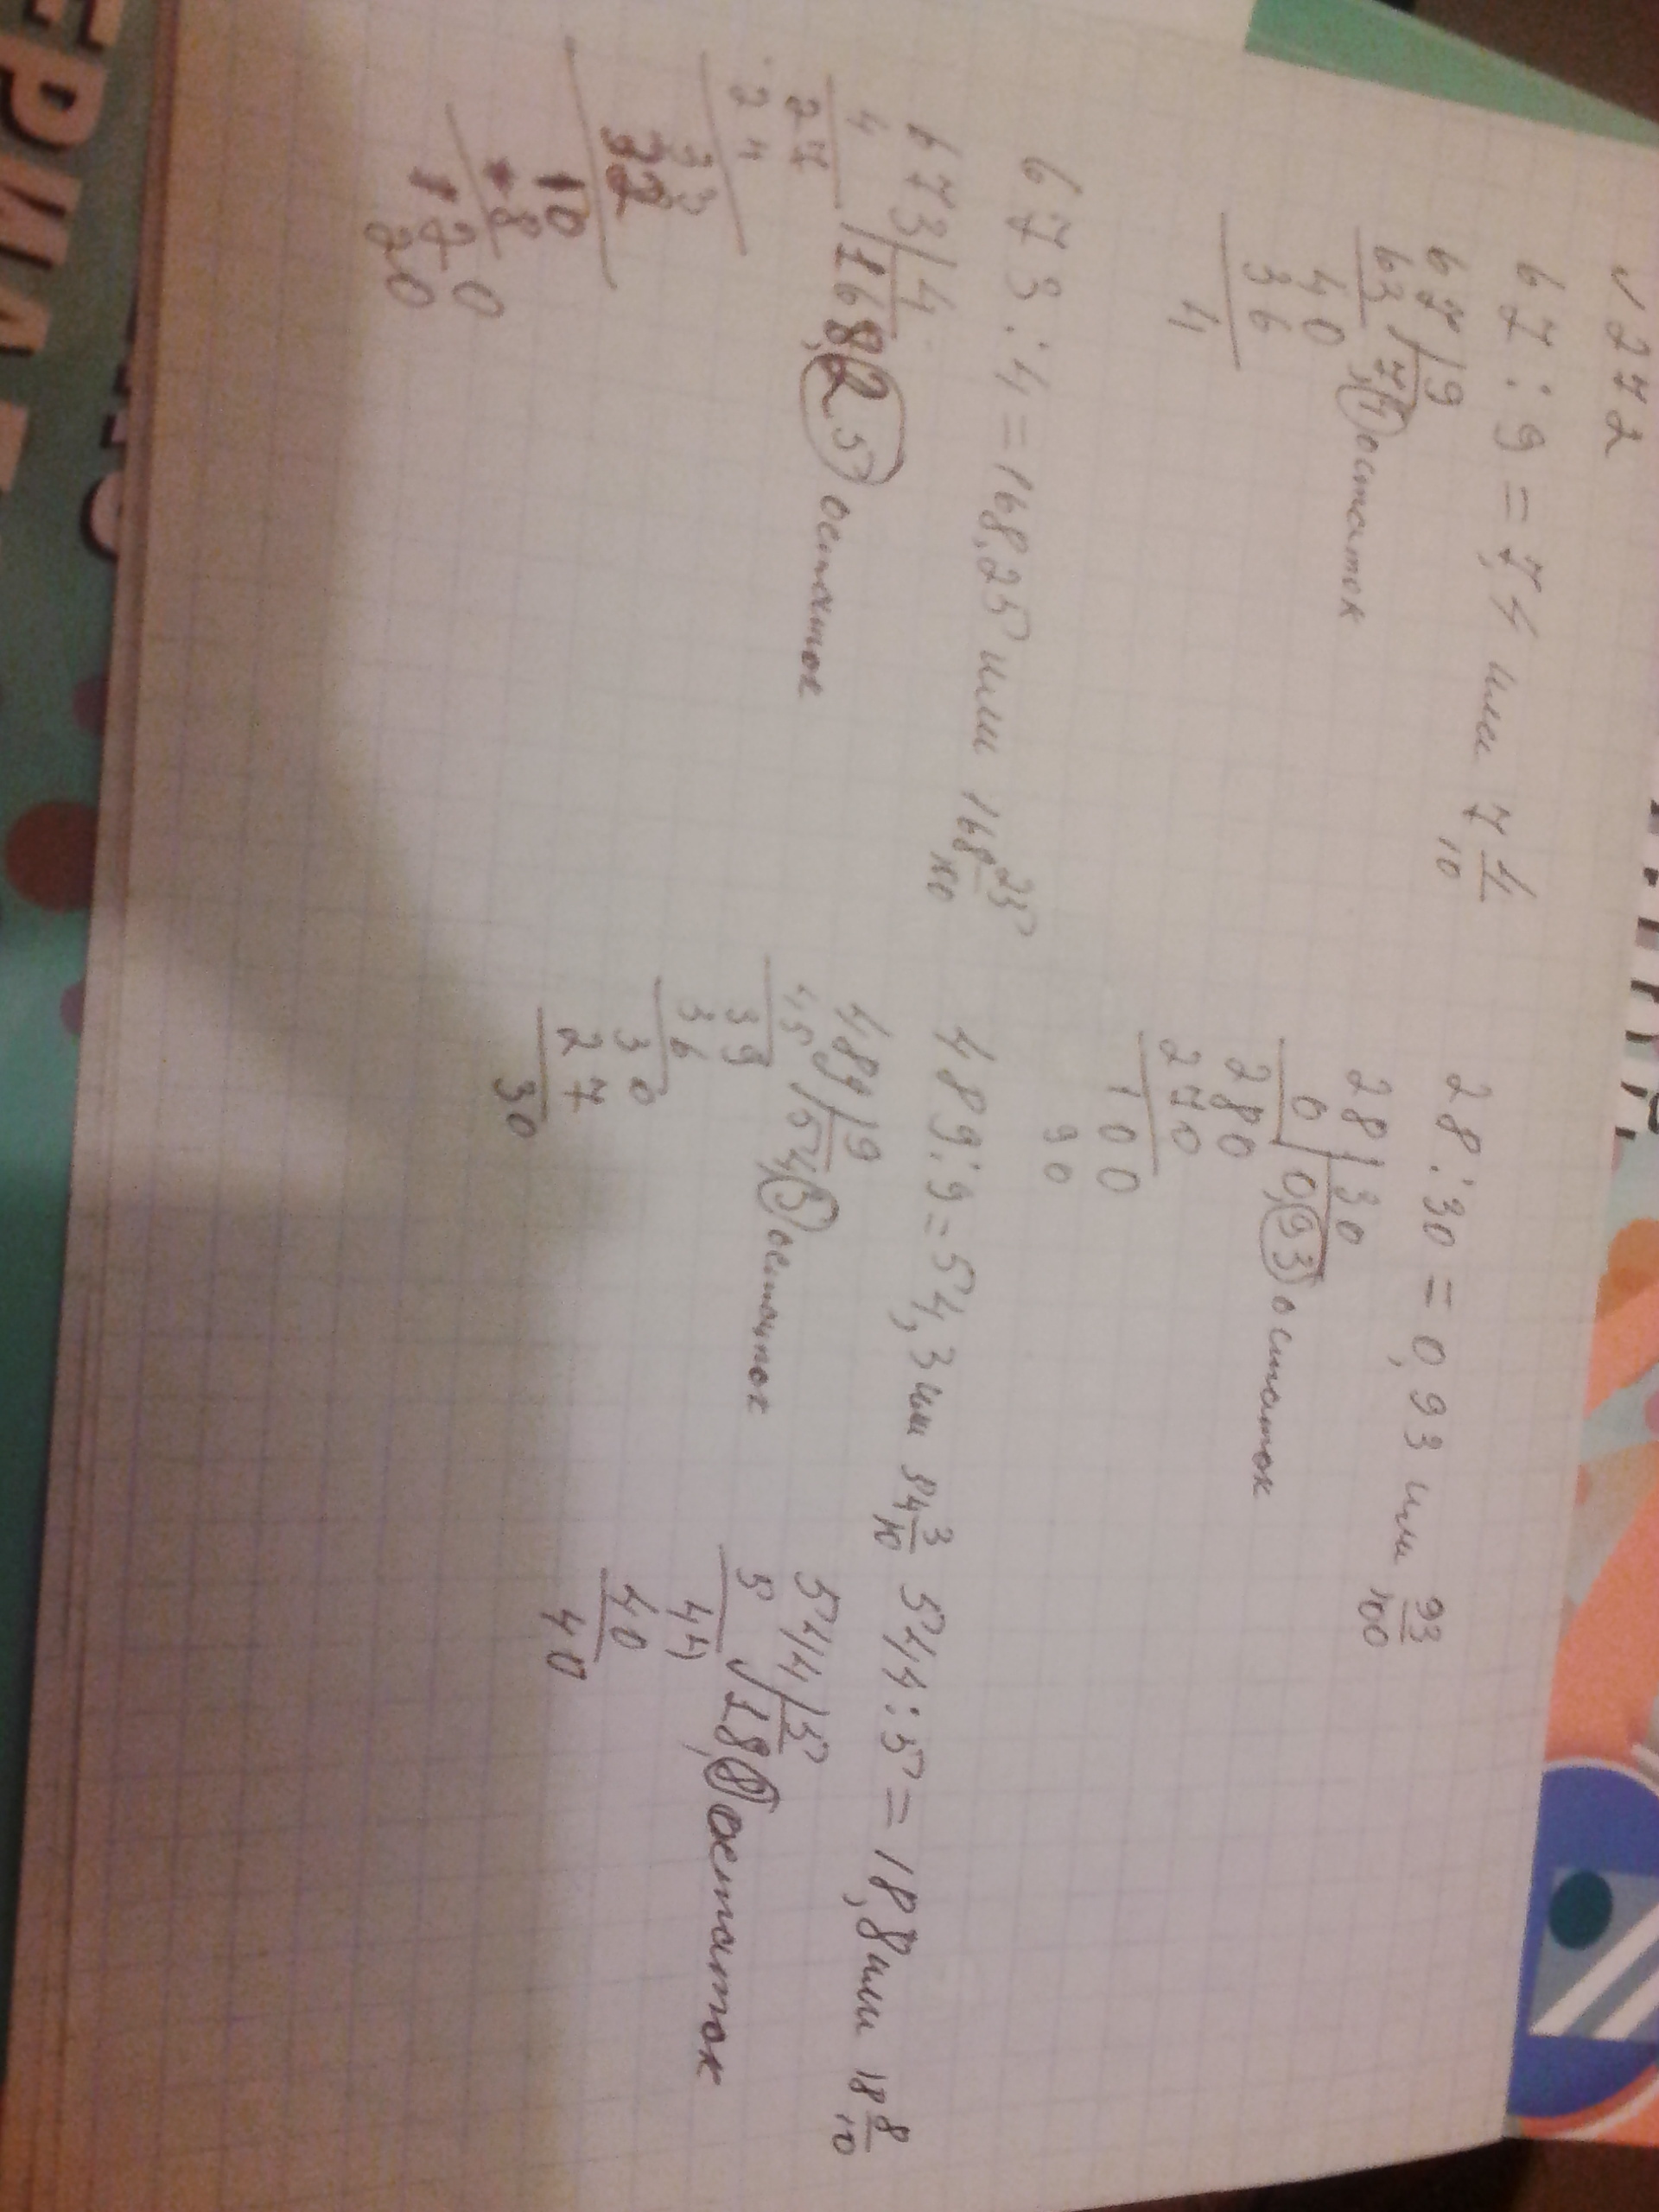 √272
67:9=7,4 или 7 4/10
67|9
63 7,4 остаток
40
36
4
28:30=0,93 или 93/100
28|30
0 0,93 остаток
280
270
100
90
673:4=168,25 или 168 25/100
673|4
4 168,25 остаток
27
24
33
32
10
8
20
20
0
489:9=54,3 или 54 3/10
489|9
45 54,3 остаток
39
36
30
27
30
544:5=18,8 или 18 8/10
544|5
5 18,8 остаток
44
40
40